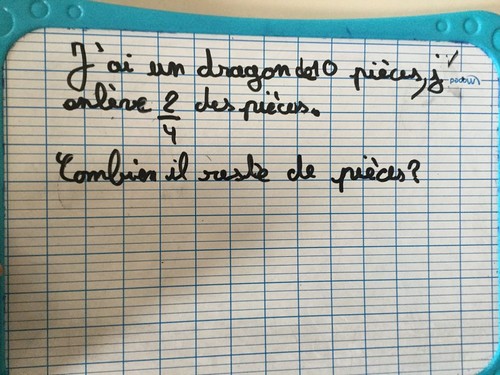 J'ai un dragon de 10 pièces, j'
enlève 2/4 des pièces.
Combien il reste de pièces?